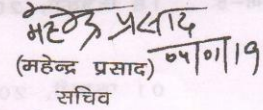 महेन्द्र प्रसाद
04/01/19
(महेन्द्र प्रसाद)
सचिव